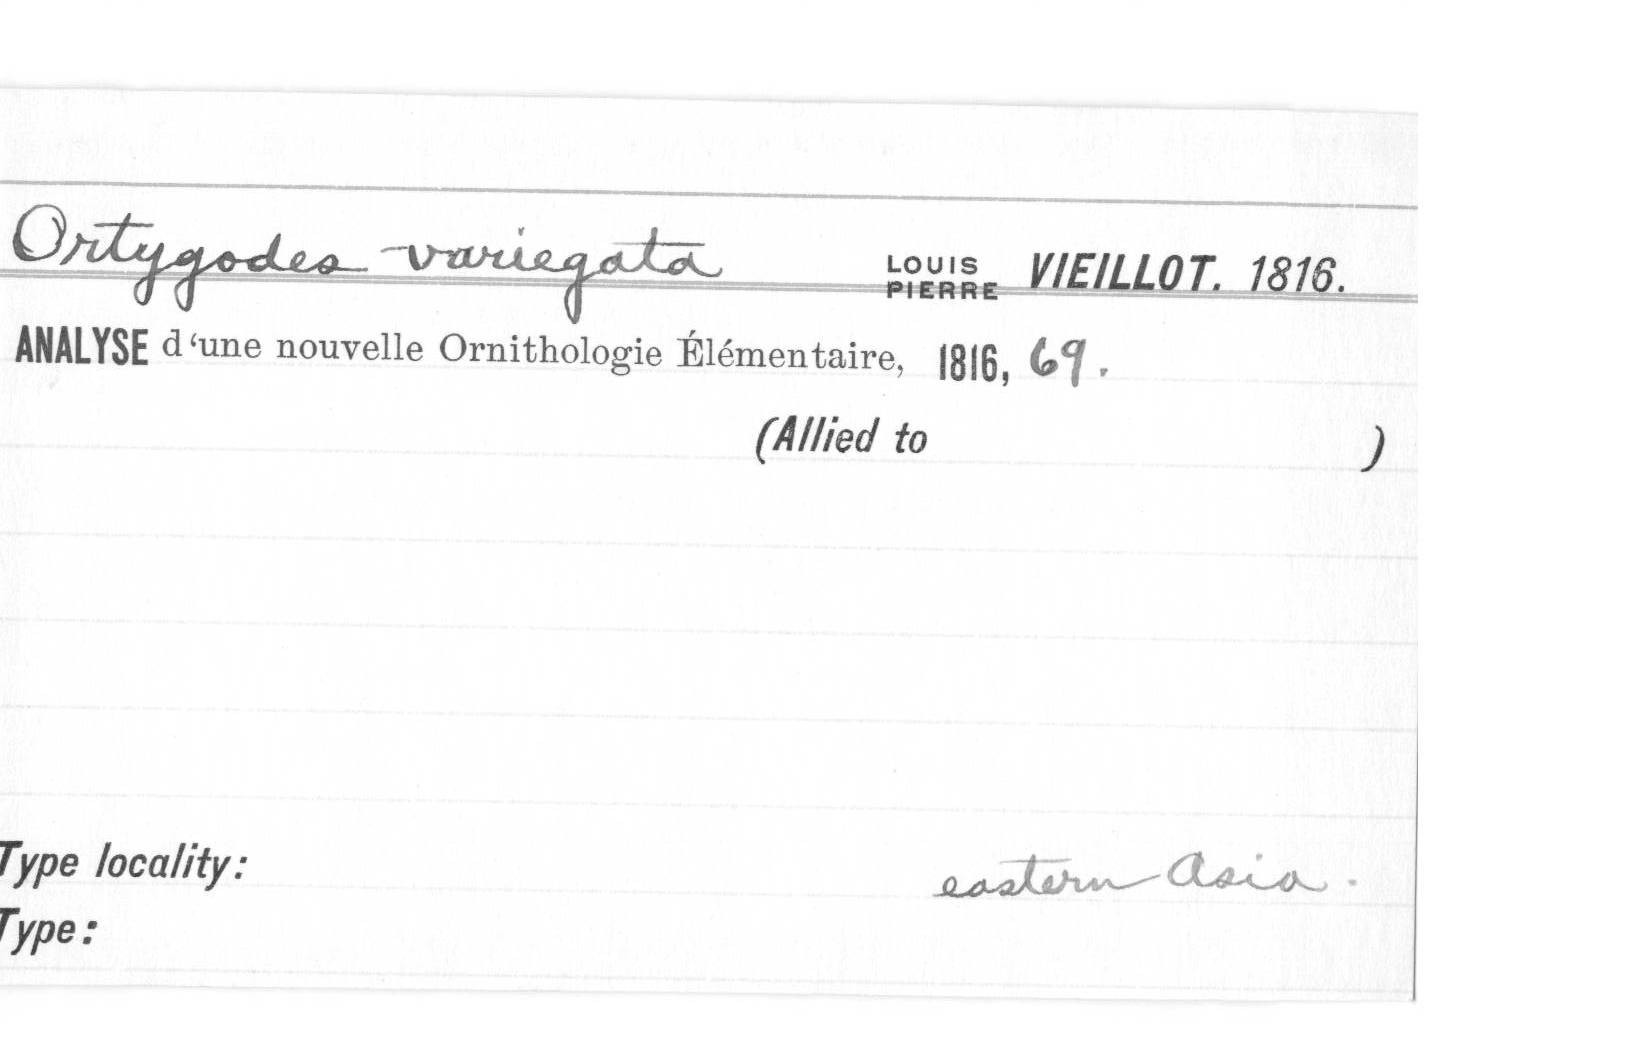 Ortygodes variegata LOUIS PIERRE VIEILLOT. 1816.
ANALYSE d‘une nouvelle Ornithologie Élémentaire, 1816, 69.
(Allied to )
Type locality: eastern Asia.
Type: